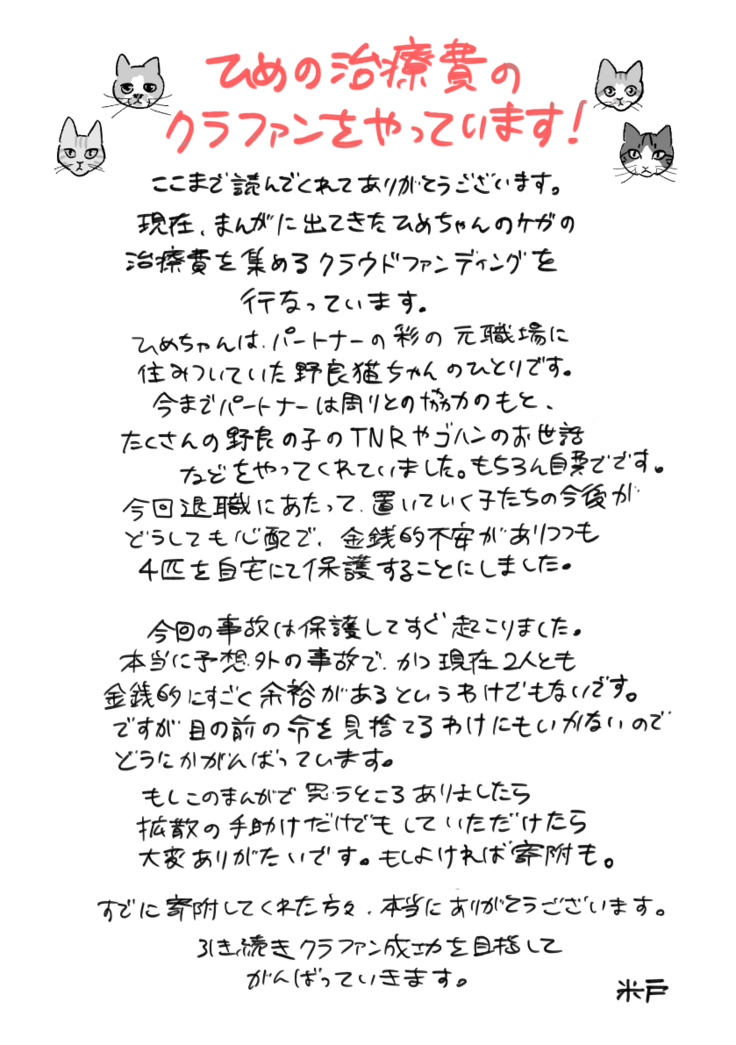 ひめの治療費の
クラファンをやっています!
ここまで読んでくれてありがとうございます。
現在、まんがに出てきたひめちゃんのケガの
治療費を集めるクラウドファンディングを
行なっています。
ひめちゃんは、パートナーの彩の元職場に
住みついていた野良猫ちゃんのひとりです。
今までパートナーは周りとの協力のもと、
たくさんの野良の子のTNRやゴハンのお世話
などをやってくれていました。もちろん自費でです。
今回退職にあたって、置いていく子たちの今後が
どうしても心配で、金銭的不安がありつつも
4匹を自宅にて保護することにしました。
今回の事故は保護してすぐ起こりました。
本当に予想外の事故で、かつ現在2人とも
金銭的にすごく余裕があるというわけでもないです。
ですが目の前の命を見捨てるわけにもいかないので
どうにかがんばっています。
もしこのまんがで思うところありましたら
拡散の手助けだけでもしていただけたら
大変ありがたいです。もしよければ寄附も。
すでに寄附してくれた方々、本当にありがとうございます。
引き続きクラファン成功を目指して
がんばっていきます。
米戸